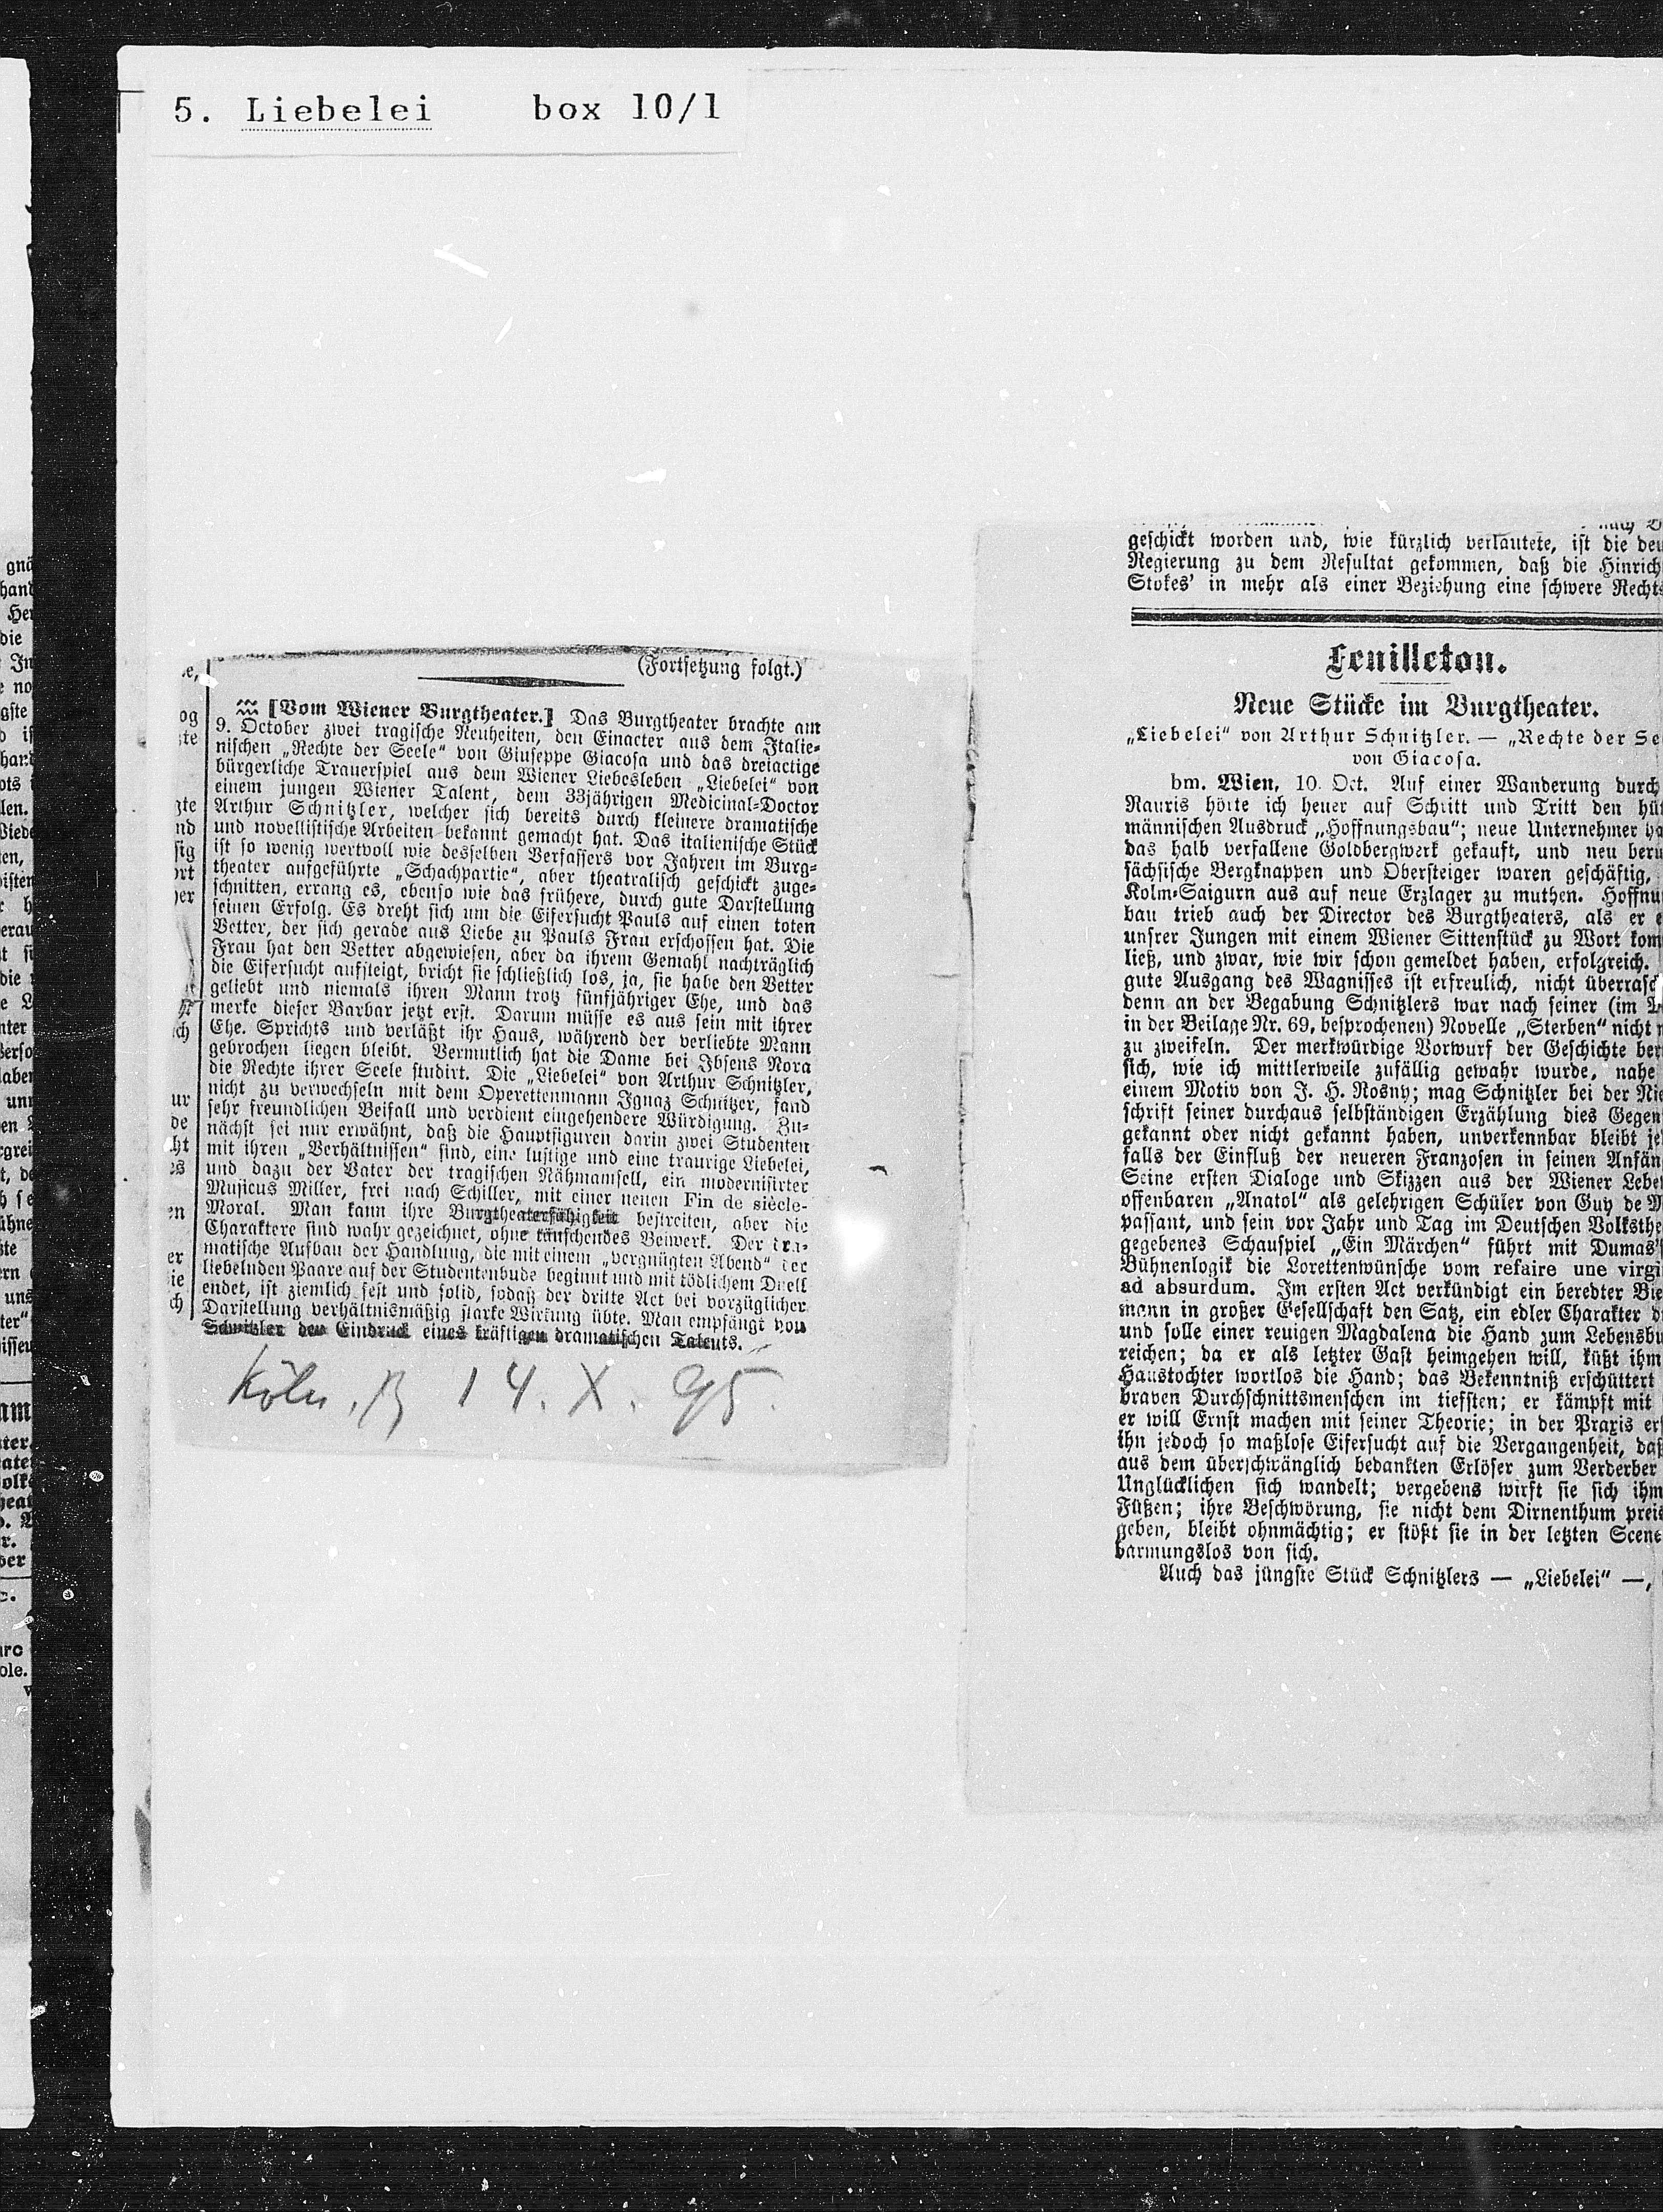 5. Liebelei box 10/1
(Fortsetzung folgt.)
[Vom Wiener Burgtheater.] Das Burgtheater brachte am
9. October zwei tragische Neuheiten, den Einacter aus dem Italie-
nischen „Rechte der Seele“ von Giuseppe Giacosa und das dreiactige
bürgerliche Trauerspiel aus dem Wiener Liebesleben „Liebelei“ von
einem jungen Wiener Talent, dem 33jährigen Medicinal-Doctor
Arthur Schnitzler, welcher sich bereits durch kleinere dramatische
und novellistische Arbeiten bekannt gemacht hat. Das italienische Stück
ist so wenig wertvoll wie desselben Verfassers vor Jahren im Burg-
theater aufgeführte „Schachpartie“, aber theatralisch geschickt zuge-
schnitten, errang es, ebenso wie das frühere, durch gute Darstellung
seinen Erfolg. Es dreht sich um die Eifersucht Pauls auf einen toten
Vetter, der sich gerade aus Liebe zu Pauls Frau erschossen hat. Die
Frau hat den Vetter abgewiesen, aber da ihrem Gemahl nachträglich
die Eifersucht aufsteigt, bricht sie schließlich los, ja, sie habe den Vetter
geliebt und niemals ihren Mann trotz fünfjähriger Ehe, und das
merke dieser Barbar jetzt erst. Darum müsse es aus sein mit ihrer
Ehe. Sprichts und verläßt ihr Haus, während der verliebte Mann
gebrochen liegen bleibt. Vermutlich hat die Dame bei Ibsens Nora
die Rechte ihrer Seele studirt. Die „Liebelei“ von Arthur Schnitzler,
nicht zu verwechseln mit dem Operettenmann Ignaz Schnitzer, fand
sehr freundlichen Beifall und verdient eingehendere Würdigung. Zu-
nächst sei nur erwähnt, daß die Hauptfiguren darin zwei Studenten
mit ihren „Verhältnissen“ sind, eine lustige und eine traurige Liebelei,
und dazu der Vater der tragischen Nähmamsell, ein modernisirter
Musicus Miller, frei nach Schiller, mit einer neuen Fin de siècle-
Moral. Man kann ihre Burgtheaterfähigkeit bestreiten, aber die
Charaktere sind wahr gezeichnet, ohne täuschendes Beiwerk. Der dra-
matische Aufbau der Handlung, die mit einem „vergnügten Abend“ der
liebelnden Paare auf der Studentenbude beginnt und mit tödlichem Duell
endet, ist ziemlich fest und solid, sodaß der dritte Act bei vorzüglicher
Darstellung verhältnismäßig starke Wirkung übte. Man empfängt von
Schnitzler den Eindruck eines kräftigen dramatischen Talents.
Köln. 14. X. 95.
geschickt worden und, wie kürzlich verlautete, ist die deu
Regierung zu dem Resultat gekommen, daß die Hinrich
Stokes' in mehr als einer Beziehung eine schwere Rechts
Feuilleton.
Neue Stücke im Burgtheater.
„Liebelei“ von Arthur Schnitzler. — „Rechte der Se
von Giacosa.
bm. Wien, 10. Oct. Auf einer Wanderung durch
Rauris hörte ich heuer auf Schritt und Tritt den hüt
männischen Ausdruck „Hoffnungsbau“; neue Unternehmer ha
das halb verfallene Goldbergwerk gekauft, und neu beru
sächsische Bergknappen und Obersteiger waren geschäftig,
Kolm-Saigurn aus auf neue Erzlager zu muthen. Hoffnu
bau trieb auch der Director des Burgtheaters, als er e
unsrer Jungen mit einem Wiener Sittenstück zu Wort kom
ließ, und zwar, wie wir schon gemeldet haben, erfolgreich.
gute Ausgang des Wagnisses ist erfreulich, nicht überrasch
denn an der Begabung Schnitzlers war nach seiner (im
in der Beilage Nr. 69, besprochenen) Novelle „Sterben“ nicht
zu zweifeln. Der merkwürdige Vorwurf der Geschichte ber
sich, wie ich mittlerweile zufällig gewahr wurde, nahe
einem Motiv von J. H. Rosny; mag Schnitzler bei der Nie
schrift seiner durchaus selbständigen Erzählung dies Gegen
gekannt oder nicht gekannt haben, unverkennbar bleibt je
falls der Einfluß der neueren Franzosen in seinen Anfän
Seine ersten Dialoge und Skizzen aus der Wiener Lebe
offenbaren „Anatol“ als gelehrigen Schüler von Guy de M
passant, und sein vor Jahr und Tag im Deutschen Volksthe
gegebenes Schauspiel „Ein Märchen“ führt mit Dumas'
Bühnenlogik die Lorettenwünsche vom refaire une virgi
ad absurdum. Im ersten Act verkündigt ein beredter Bie
mann in großer Gesellschaft den Satz, ein edler Charakter d
und solle einer reuigen Magdalena die Hand zum Lebensbu
reichen; da er als letzter Gast heimgehen will, küßt ihm
Haustochter wortlos die Hand; das Bekenntniß erschüttert
braven Durchschnittsmenschen im tiefsten; er kämpft mit
er will Ernst machen mit seiner Theorie; in der Praxis er
ihn jedoch so maßlose Eifersucht auf die Vergangenheit, daß
aus dem überschwänglich bedankten Erlöser zum Verderber
Unglücklichen sich wandelt; vergebens wirft sie sich ihm
Füßen; ihre Beschwörung, sie nicht dem Dirnenthum preis
geben, bleibt ohnmächtig; er stößt sie in der letzten Scene
barmungslos von sich.
Auch das jüngste Stück Schnitzlers — „Liebelei“ —,